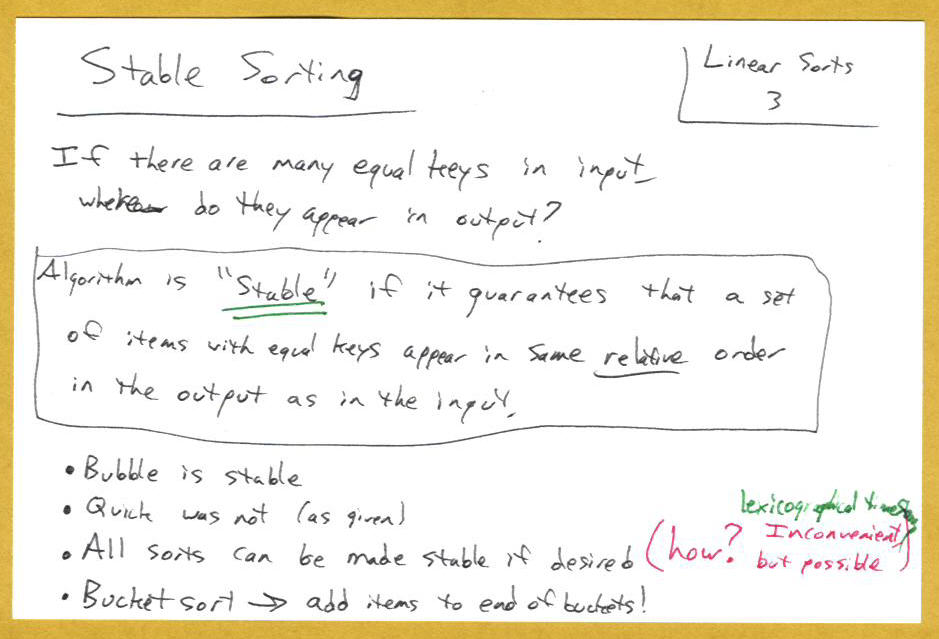 Stable Sorting
Linear Sorts
3
If there are many equal keys in input
where do they appear in output?
Algorithm is "Stable" if it guarantees that a set
of items with equal keys appear in same relative order
in the output as in the input.
• Bubble is stable
• Quick was not (as given)
lexicographical
• All sorts can be made stable if desired (how? Inconvenient
but possible)
• Bucket sort → add items to end of buckets!